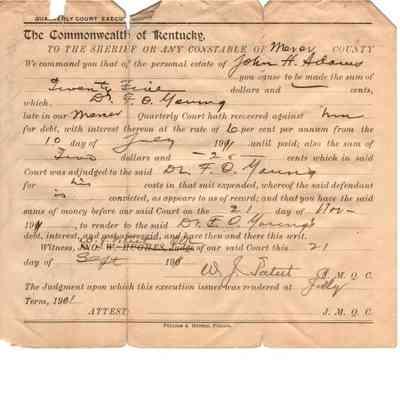 QUARTERLY COURT EXECU
The Commonwealth of Kentucky,
TO THE SHERIFF OR ANY CONSTABLE OF Mercer COUNTY
We command you that of the personal estate of John H. Adams
you cause to be made the sum of
Twenty Five dollars and — cents,
which, Dr. F. O. Young
late in our Mercer Quarterly Court hath recovered against him
for debt, with interest thereon at the rate of 6 per cent per annum from the
10 day of July 191 until paid; also the sum of
Two dollars and 25 cents which in said
Court was adjudged to the said Dr. F. O. Young
for his costs in that suit expended, whereof the said defendant
is convicted, as appears to us of record; and that you have the said
sums of money before our said Court on the 21 day of Nov-
191, to render to the said Dr. F. O. Young
debt, interest, and costs aforesaid, and have then and there this writ.
Witness, W. HUGHES Judge of our said Court this 21
day of Sept 190
W. J. J. M. Q. C.
The Judgment upon which this execution issues was rendered at July
Term, 190
ATTEST: J. M. Q. C.